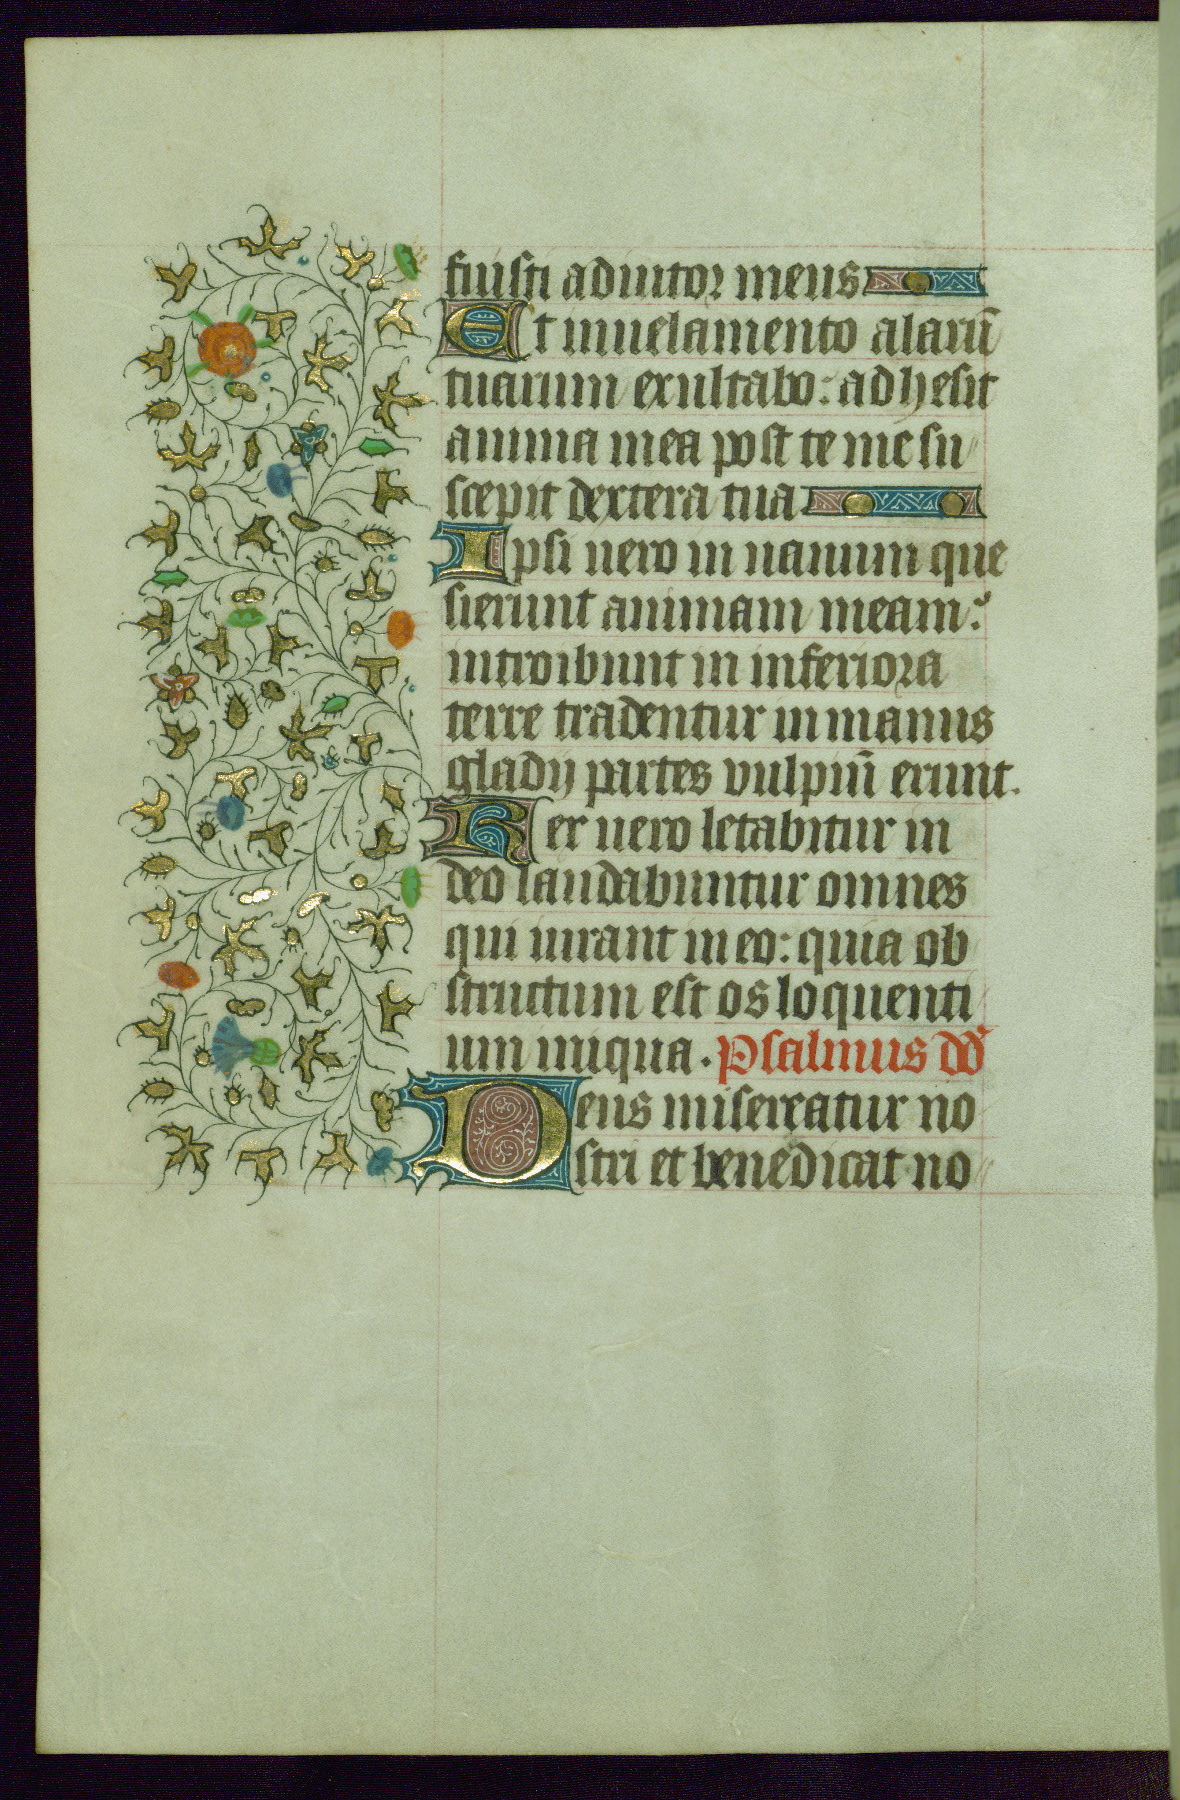 fuisti adiutor meus
Et in uelamento alarū
tuarum exultabo: adhesit
anima mea post te me su
scepit dextera tua
Ipsi uero in uanum que
sierunt animam meam:
introibunt in inferiora
terre tradentur in manus
gladij partes vulpiū erunt.
Rex uero letabitur in
deo laudabuntur omnes
qui iurant in eo: quia ob
structum est os loquenti
um iniqua. Psalmus dd̄
Deus misereatur no
stri et benedicat no